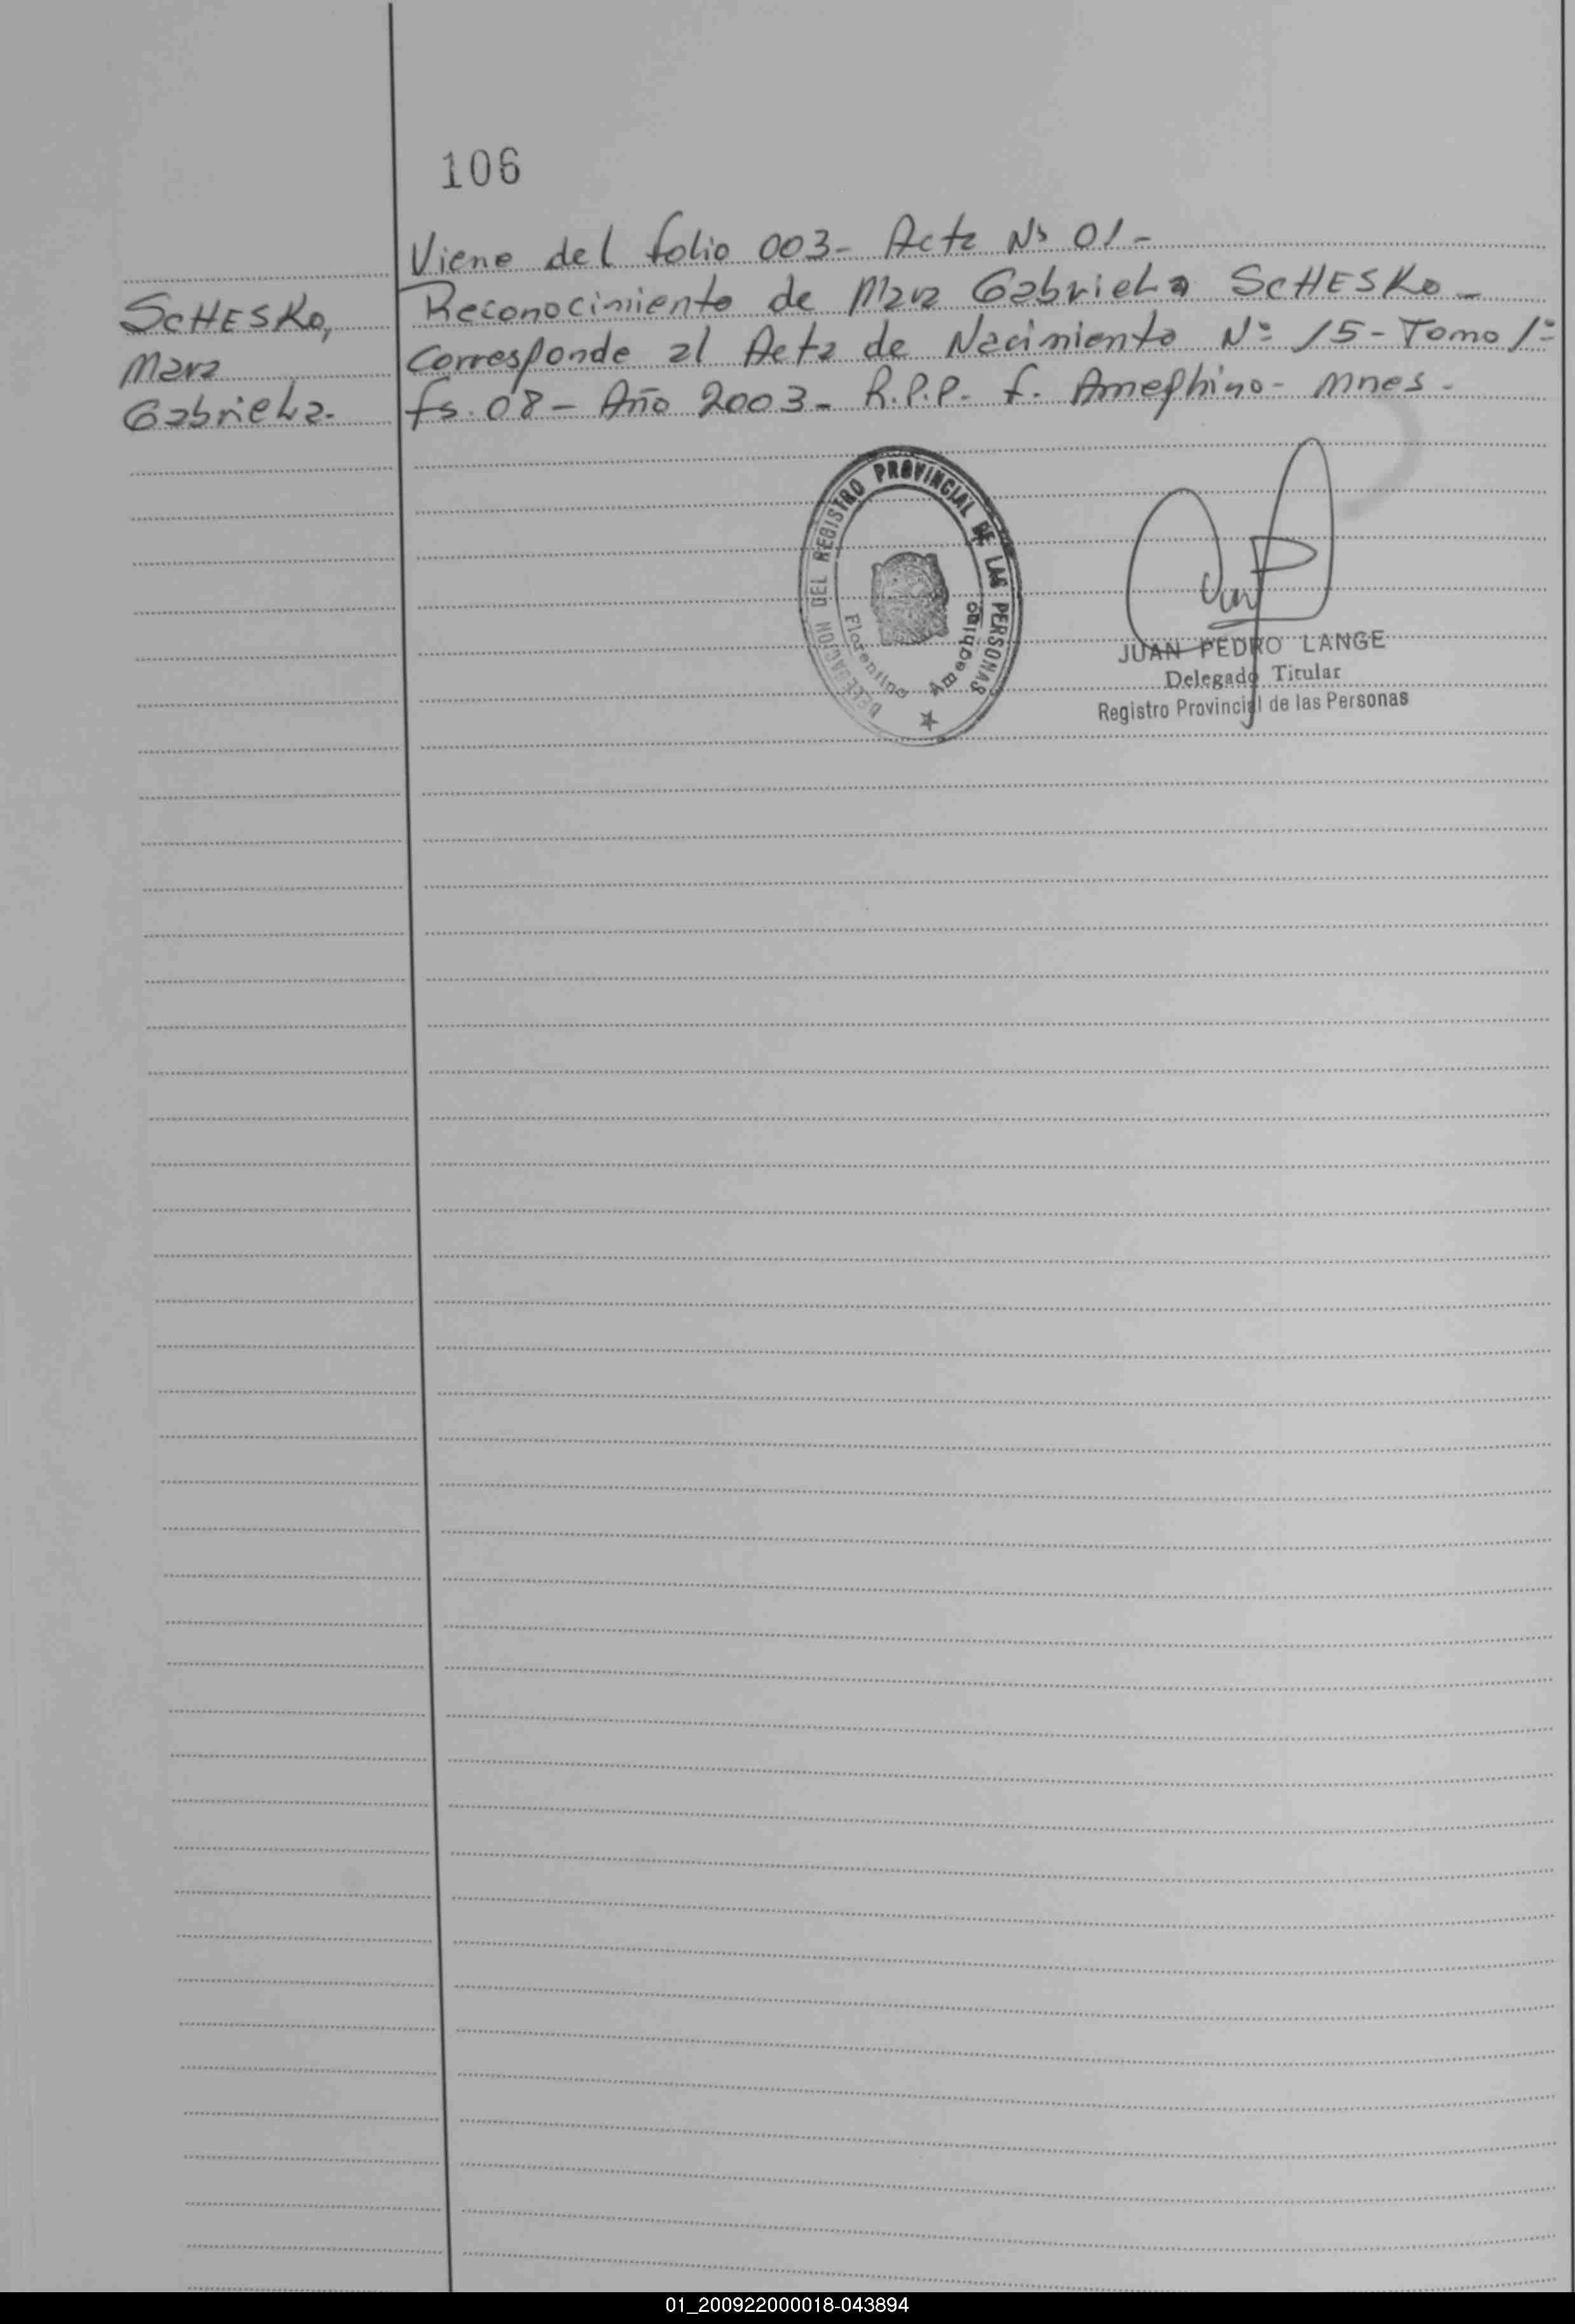 106
Viene del folio 003- Acta Nº 01-
Reconocimiento de Mara Gabriela SCHESKO-
Corresponde al Acta de Nacimiento Nº 15-Tomo 1º
fs. 08- Año 2003- R.P.P. f. Ameghino- Mnes-
SCHESKO,
Mara
Gabriela-
DELEGACION DEL REGISTRO PROVINCIAL DE LAS PERSONAS
Florentino Ameghino
JUAN PEDRO LANGE
Delegado Titular
Registro Provincial de las Personas
01_200922000018-043894